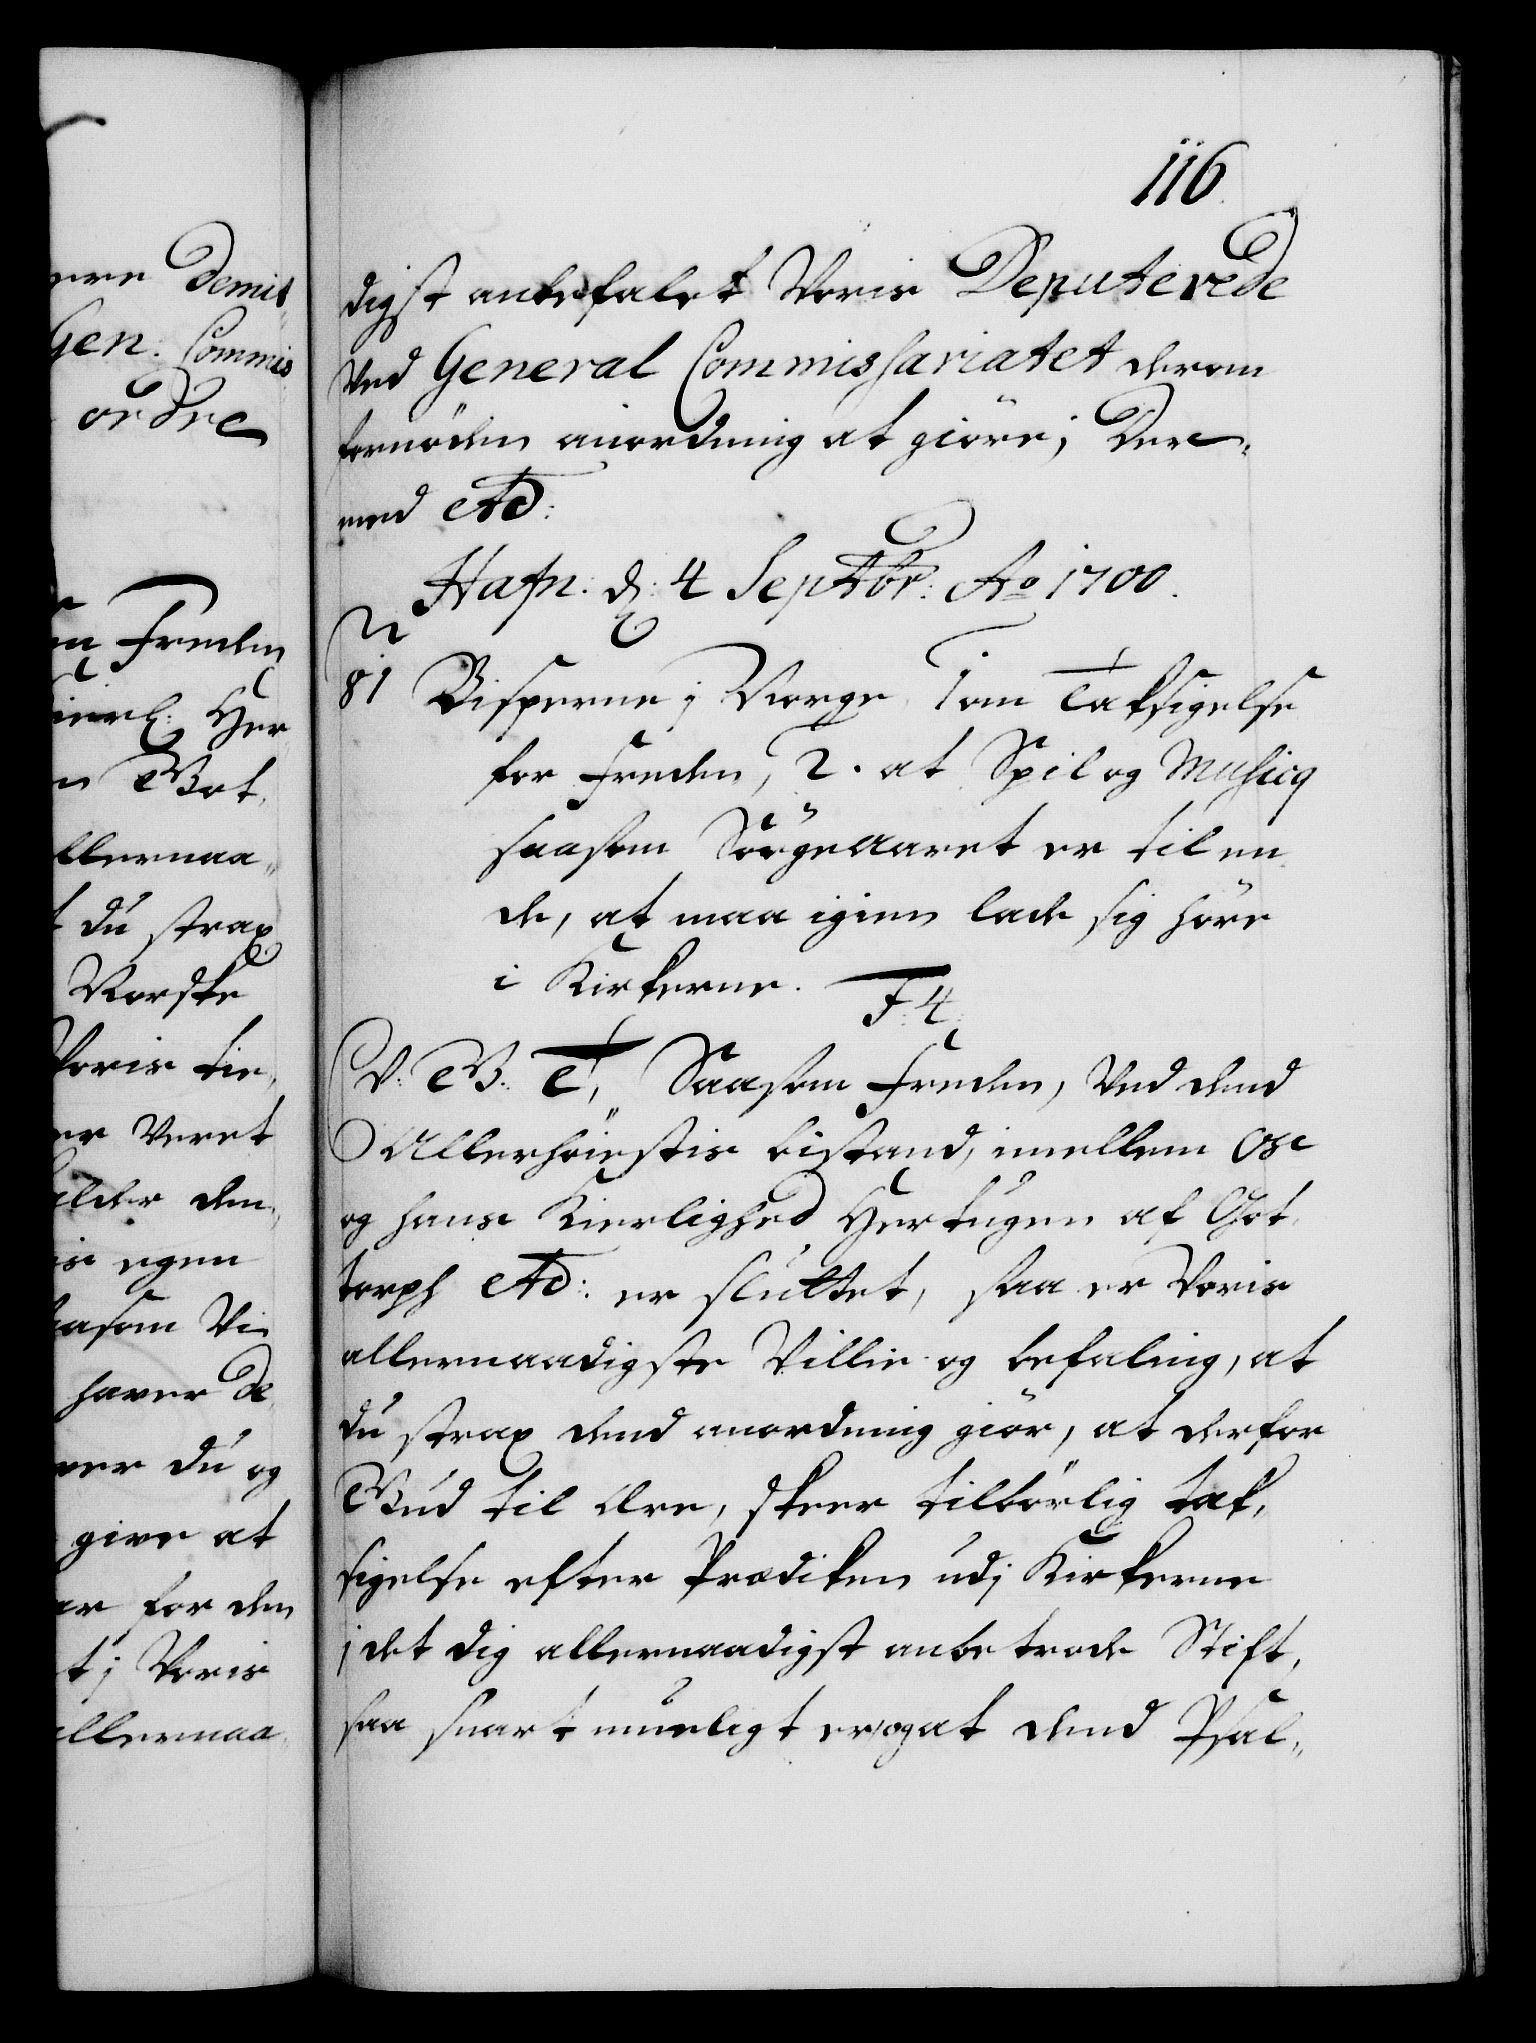 116
digst anbefalet Voris Deputerede
ved General Commissariatet derom
fornöden anordning at giöre; Der-
med etc:
Hafn: d: 4 Septbr: Ao 1700.
81 Bisperne i Norge 1 om Taksigelse
for Freden, 2. at Spil og Musicq
saasom Sörgeaaret er til en
de, at maa igien lade sig höre
i Kirkerne. F: 4.
V: G: T, Saasom Freden, ved dend
Allerhöiestis bistand, imellem Os
og hans Kierlighed Hertugen af Got,
torph etc: er sluttet, saa er Voris
allernaadigste Villie og befaling, at
du strax dend anordning giör, at derfor
Gud til ære, skeer tilbörlig tak,
sigelse efter Prædiken udj Kirkerne
j det dig allernaadigst anbetroede Stift,
saa snart mueligt er, og at dend Psal-
ere Demis
Gen: Commis
ordre
Freden
Kierl: Her
n Got,
llernaa-
t du strax
Norske
Voris tie,
er veret
alder den,
is egen
aasom Vi
haver de,
ver du og
give at
er for den
t j Voris
allernaa,